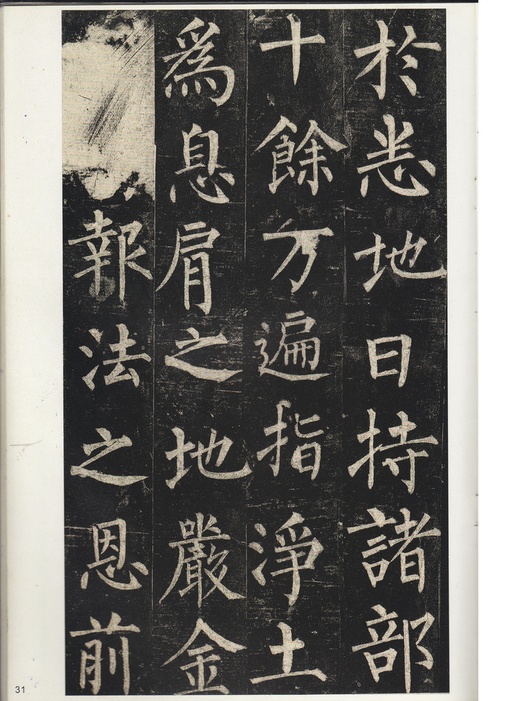 於悉地日持諸部
十餘万遍指淨土
爲息肩之地嚴金
報法之恩前
31